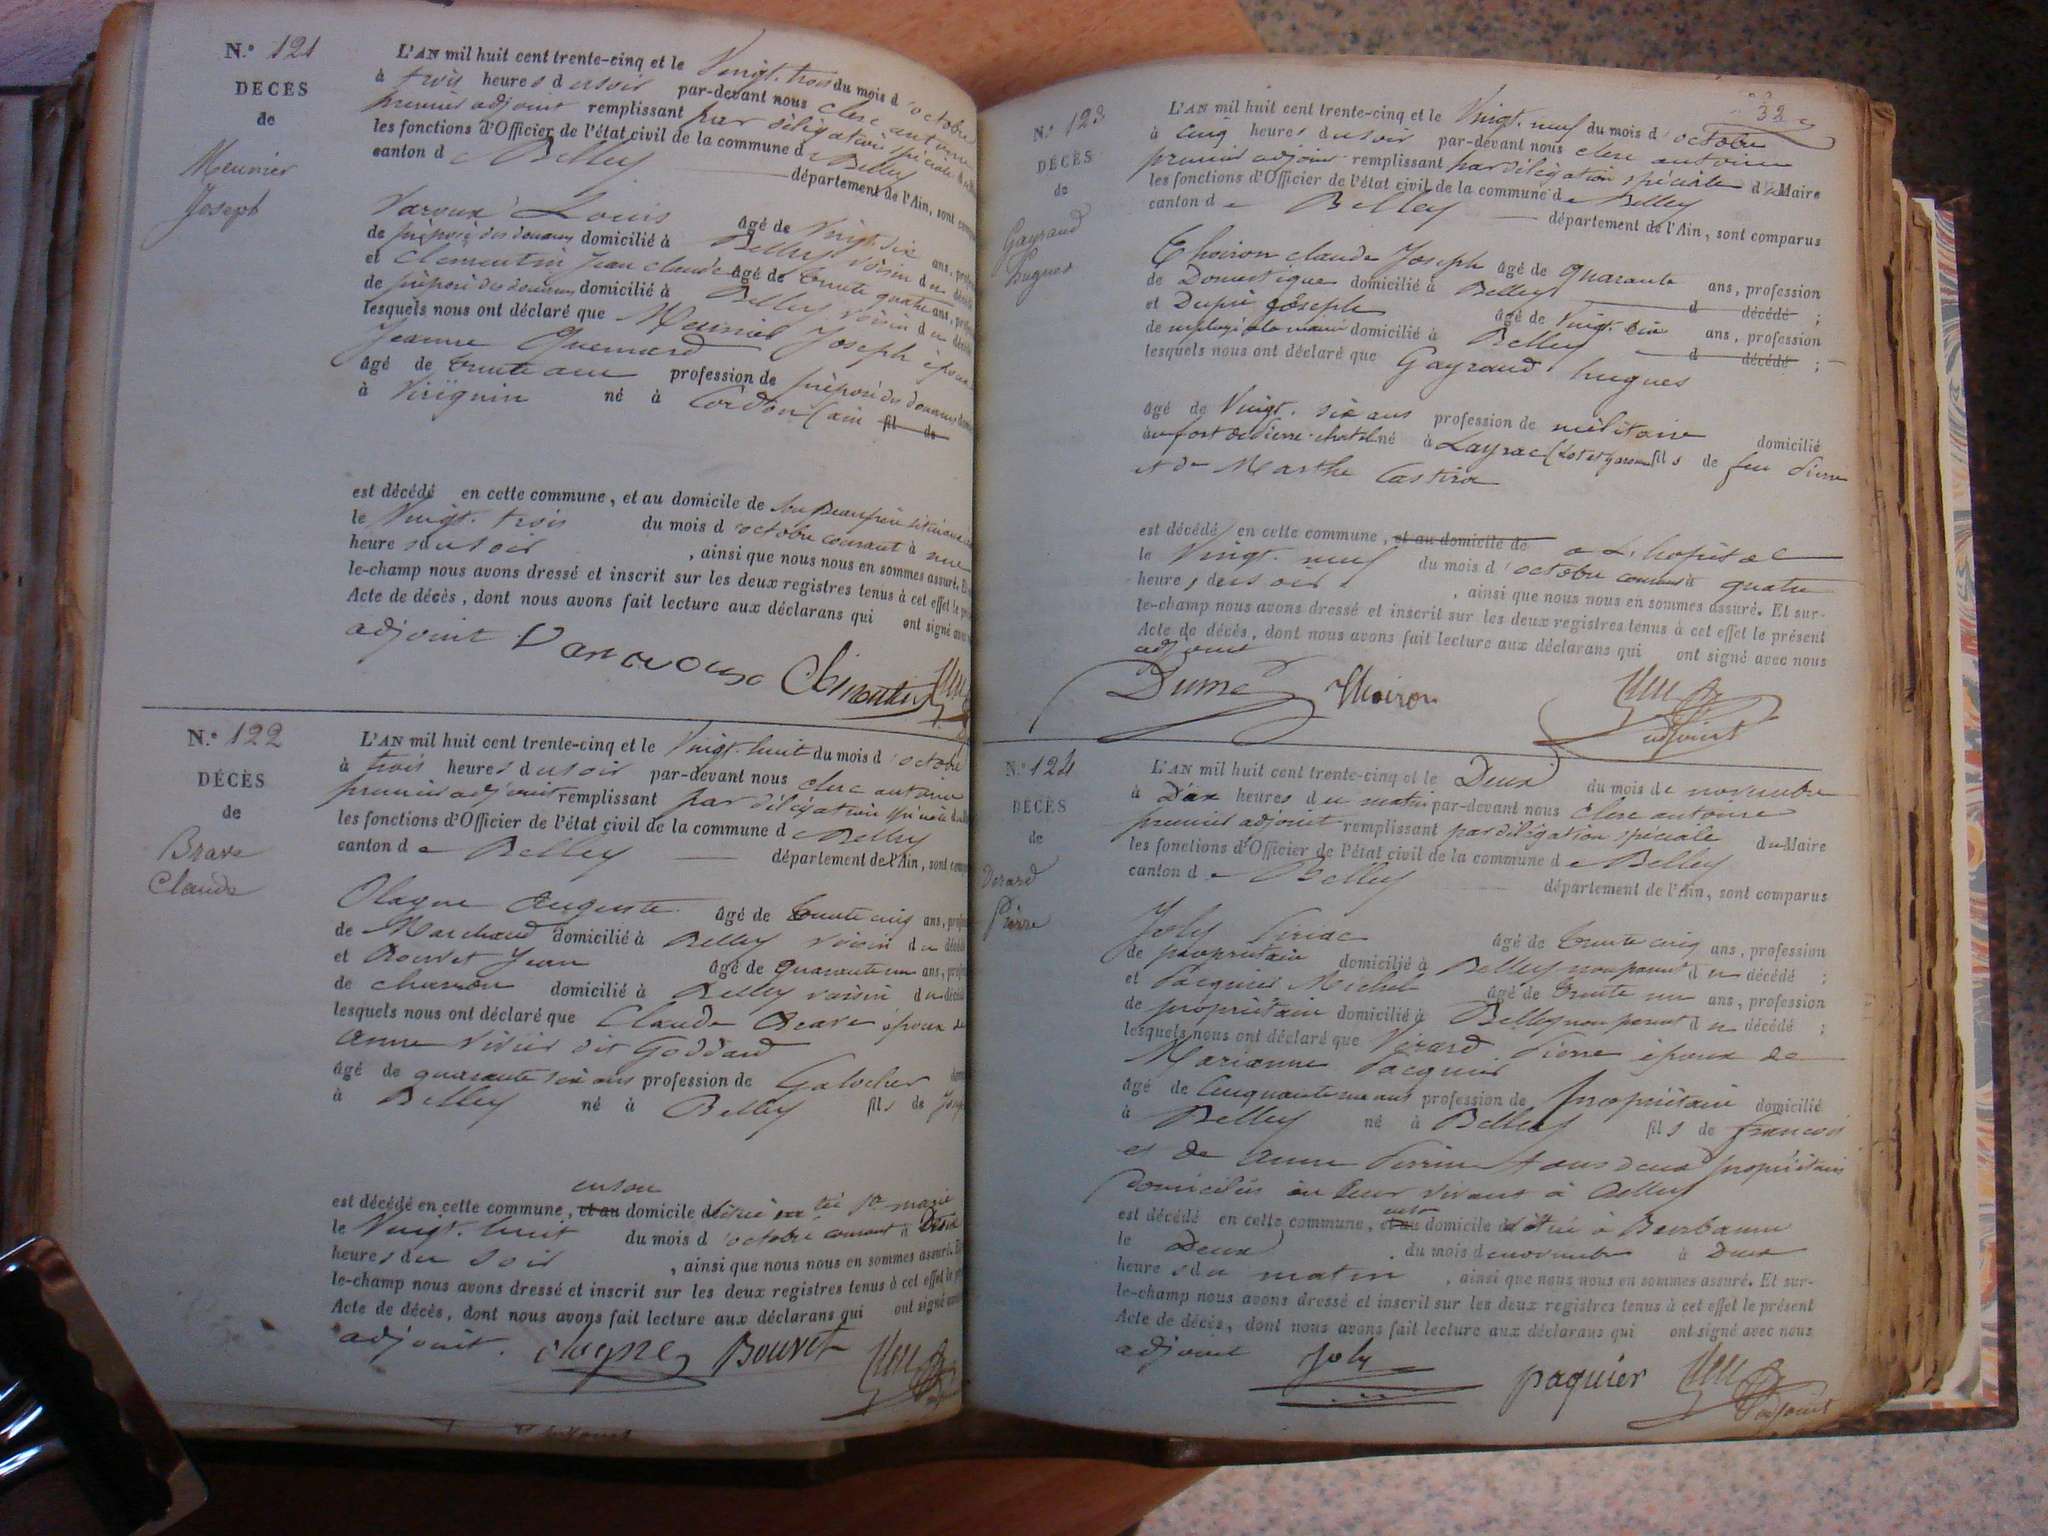 N.º 121
DÉCÈS
de
Meunier
Joseph
L'AN mil huit cent trente-cinq et le Vingt-trois du mois d'octobre
à trois heures du soir par-devant nous clerc antoine
premier adjoint remplissant par délégation spéciale
les fonctions d'Officier de l'état civil de la commune de Belley
canton de Belley département de l'Ain, sont
Louis âgé de Vingt six ans,
de préposé des douanes domicilié à Belley voisin du
et Clementin Jean claude âgé de trente quatre ans,
de préposé des douanes domicilié à Belley voisin du
lesquels nous ont déclaré que Meunier Joseph époux
Jeanne
âgé de trente ans profession de préposé des douanes
à Virignin né à Cordon (ain fil de
est décédé en cette commune, et au domicile de
le Vingt-trois du mois d'octobre courant à une
heure du soir, ainsi que nous nous en sommes assuré. Et
le-champ nous avons dressé et inscrit sur les deux registres tenus à cet effet le
Acte de décès, dont nous avons fait lecture aux déclarans qui ont signé
adjoint
N.º 122
DÉCÈS
de
Brave
Claude
L'AN mil huit cent trente-cinq et le Vingt-huit du mois d'octobre
à trois heures du soir par-devant nous clerc antoine
premier adjoint remplissant par délégation spéciale
les fonctions d'Officier de l'état civil de la commune de Belley
canton de Belley département de l'Ain, sont
auguste âgé de trente cinq ans,
de Marchand domicilié à Belley voisin du décédé
et Bouvet Jean âgé de quarante un ans,
de charron domicilié à Belley voisin du décédé
lesquels nous ont déclaré que Claude Brave époux de
anne dit Goddard
âgé de quarante six ans profession de Galocher
à Belley né à Belley fils de
en son
est décédé en cette commune, et au domicile
le Vingt-huit du mois d'octobre courant à
heures du soir, ainsi que nous nous en sommes assuré.
le-champ nous avons dressé et inscrit sur les deux registres tenus à cet effet le
Acte de décès, dont nous avons fait lecture aux déclarans qui ont signé
adjoint. Bouvet
32
N.º 123
DÉCÈS
de
Gayraud
hugues
L'AN mil huit cent trente-cinq et le Vingt-neuf du mois d'octobre
à cinq heures du soir par-devant nous clerc antoine
premier adjoint remplissant par délégation spéciale du Maire
les fonctions d'Officier de l'état civil de la commune de Belley
canton de Belley département de l'Ain, sont comparus
Thoiron claude Joseph âgé de quarante ans, profession
de Domestique domicilié à Belley d décédé ;
et Joseph âgé de Vingt ans, profession
de domicilié à Belley d décédé ;
lesquels nous ont déclaré que Gayraud hugues
âgé de Vingt-six ans profession de militaire domicilié
au fort de Pierre-chatel né à Layrac (Lot et garonne fils de feu Pierre
et de Marthe Castera
est décédé en cette commune, et au domicile de a L'hopital
le Vingt-neuf du mois d'octobre courant à quatre
heures du soir, ainsi que nous nous en sommes assuré. Et sur-
le-champ nous avons dressé et inscrit sur les deux registres tenus à cet effet le présent
Acte de décès, dont nous avons fait lecture aux déclarans qui ont signé avec nous
adjoint
Thoiron
adjoint
N.º 124
DÉCÈS
de
Verard
Pierre
L'AN mil huit cent trente-cinq et le Deux du mois de novembre
à Dix heures du matin par-devant nous clerc antoine
premier adjoint remplissant par délégation spéciale du Maire
les fonctions d'Officier de l'état civil de la commune de Belley
canton de Belley département de l'Ain, sont comparus
Joly âgé de trente cinq ans, profession
de propriétaire domicilié à Belley non parent du décédé ;
et Pacquier Michel âgé de trente un ans, profession
de propriétaire domicilié à Belley non parent du décédé ;
lesquels nous ont déclaré que Verard Pierre époux de
Marianne Pacquier
âgé de Cinquante un ans profession de propriétaire domicilié
à Belley né à Belley fils de francois
et de anne Perrin tous deux propriétaires
domiciliés en leur vivant à Belley
est décédé en cette commune, et au domicile situé à
le Deux du mois de novembre à Deux
heures du matin, ainsi que nous nous en sommes assuré. Et sur-
le-champ nous avons dressé et inscrit sur les deux registres tenus à cet effet le présent
Acte de décès, dont nous avons fait lecture aux déclarans qui ont signé avec nous
adjoint Joly paquier
adjoint